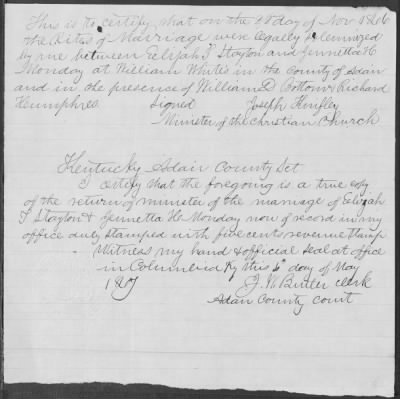 This is to certify, that on the 28 day of Nov 1866
the Rites of Marriage were legally solemnized
by me between Elijah T Stayton and Jennetta H
Monday at William White's in the County of Adair
and in the presence of William D Bottom & Richard
Humphres Signed Joseph
Minister of the Christian Church
Kentucky Adair County Sct
I certify that the foregoing is a true copy
of the return of minister of the marriage of Elijah
T Stayton & Jennetta H Monday now of record in my
office duly stamped with five cents revenue stamp
Witness my hand & official seal at office
in Columbia Ky this 6th day of May
J. W. Butler clerk
Adair County court